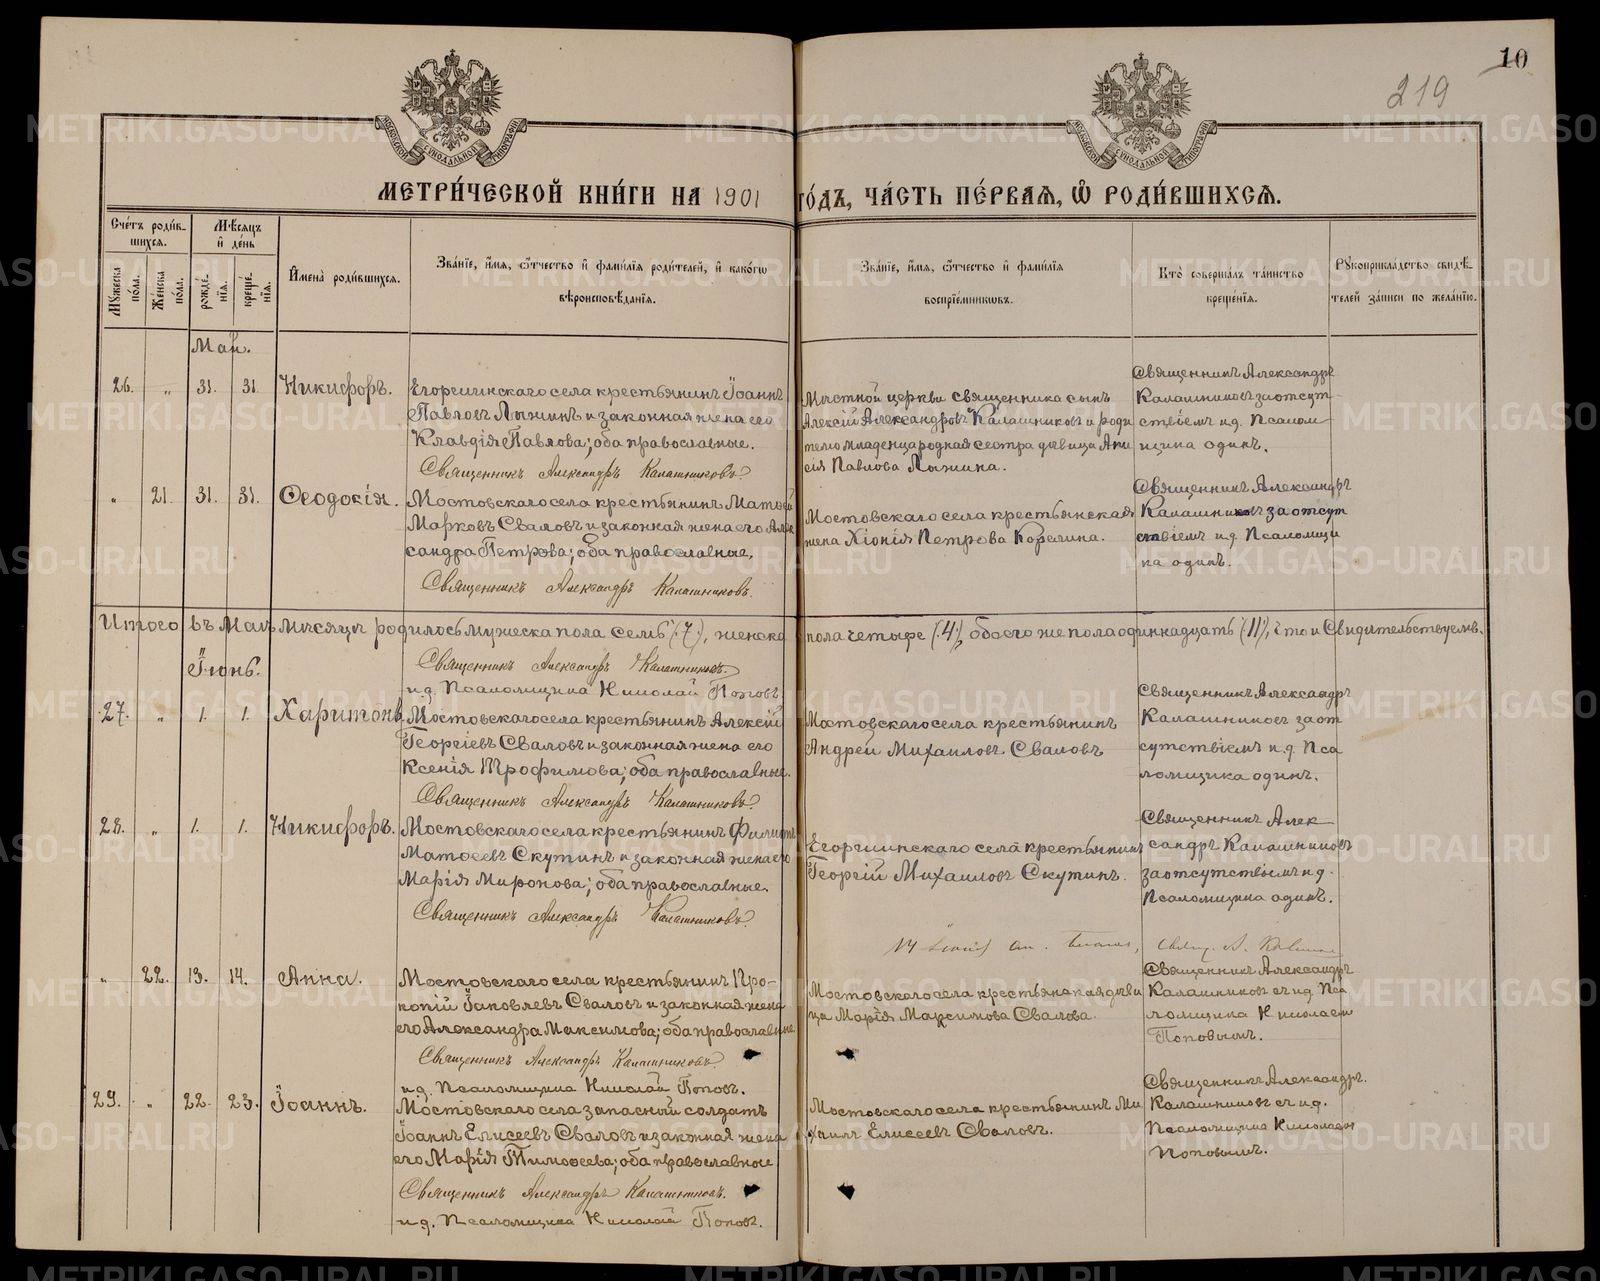 10
219
МОСКОВСКОЙ СѴНОДАЛЬНОЙ ТИПОГРАФІИ
МОСКОВСКОЙ СѴНОДАЛЬНОЙ ТИПОГРАФІИ
МЕТРИ́ЧЕСКОЙ КНИ́ГИ НА 1901 ГО́ДЪ, ЧА́СТЬ ПЕ́РВАѦ, Ѡ҆ РОДИ́ВШИХСѦ.
Сче́тъ роди́в-
шихсѧ.
Мꙋжеска по́ла.
Же́нска пола.
Мѣ́сѧцъ
и҆ де́нь
рожде́-
нїѧ.
креще́-
нїѧ.
И҆мена̀ роди́вшихсѧ.
Зва́нїе, и҆́мѧ, ѻ҆́тчество и҆ фами́лїѧ роди́телей, и҆ како́гѡ
вѣроисповѣ́данїѧ.
Зва́нїе, и҆́мѧ, ѻ҆́тчество и҆ фами́лїѧ
воспрїе́мникѡвъ.
Кто̀ соверша́лъ та́инство
креще́нїѧ.
Рꙋкоприкла́дство свидѣ́-
телей за́писи по жела́нїю.
Май.
26. „ 31. 31. Никифоръ.
Егоршинскаго села крестьянинъ Іоаннъ
Павловъ Лыжинъ и законная жена его
Клавдія Павлова; оба православные.
Священникъ Александръ Калашниковъ.
Мѣстной церкви священника сынъ
Алексій Александровъ Калашниковъ и роди
телю младенца родная сестра дѣвица Ани
сія Павлова Лыжина.
Священникъ Александръ
Калашниковъ за отсут
ствіемъ и.д. Псалом
щика одинъ.
„ 21. 31. 31. Ѳеодосія.
Мостовскаго села крестьянинъ Матѳей
Марковъ Сваловъ и законная жена его Алек
сандра Петрова; оба православные,
Священникъ Александръ Калашниковъ.
Мостовскаго села крестьянская
жена Хіонія Петрова Корелина.
Священникъ Александръ
Калашниковъ за отсут
ствіемъ и.д. Псаломщи
ка одинъ.
Итого въ Маѣ мѣсяцѣ родилось мужеска пола семь (7), женска пола четыре (4), обоего же пола одиннадцать (11), что и Свидѣтельствуемъ.
Священникъ Александръ Калашниковъ.
и.д. Псаломщика Николай Поповъ.
Іюнь.
27. „ 1. 1. Харитонъ.
Мостовскаго села крестьянинъ Алексій
Георгіевъ Сваловъ и законная жена его
Ксенія Трофимова; оба православные.
Священникъ Александръ Калашниковъ.
Мостовскаго села крестьянинъ
Андрей Михаиловъ Сваловъ
Священникъ Александръ
Калашниковъ за от
сутствіемъ и.д. Пса
ломщика одинъ.
28. „ 1. 1. Никифоръ.
Мостовскаго села крестьянинъ Филиппъ
Матѳеевъ Скутинъ и законная жена его
Марія Миронова; оба православные.
Священникъ Александръ Калашниковъ.
Егоршинскаго села крестьянинъ
Георгій Михаиловъ Скутинъ.
Священникъ Алек
сандръ Калашниковъ
за отсутствіемъ и.д.
Псаломщика одинъ.
„ 22. 13. 14. Анна.
Мостовскаго села крестьянинъ Про-
копій Іаковлевъ Сваловъ и законная жена
его Александра Максимова; оба православные
Священникъ Александръ Калашниковъ.
и.д. Псаломщика Николай Поповъ.
Мостовскаго села крестьянская дѣви
ца Марія Максимова Свалова.
Священникъ Александръ
Калашниковъ съ и.д. Пса
ломщика Николаем
Поповымъ.
29. „ 22. 23. Іоаннъ.
Мостовскаго села запасный солдатъ
Іоаннъ Елисеевъ Сваловъ и законная жена
его Марія Тимоѳеева; оба православные
Священникъ Александръ Калашниковъ.
и.д. Псаломщика Николай Поповъ.
Мостовскаго села крестьянинъ Ми
хаилъ Елисеевъ Сваловъ.
Священникъ Александръ.
Калашниковъ съ и.д.
Псаломщика Николаем
Поповымъ.
METRIKI.GASO-URAL.RU